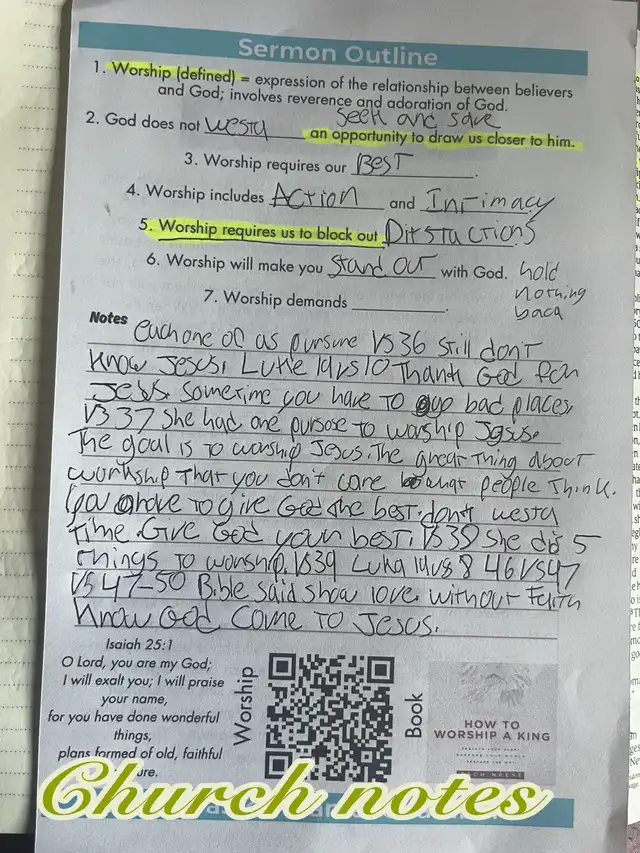 Sermon Outline
1. Worship (defined) = expression of the relationship between believers
and God; involves reverence and adoration of God.
seek and save
2. God does not westd an opportunity to draw us closer to him.
3. Worship requires our BesT.
4. Worship includes ACTION and InTimacy
5. Worship requires us to block out DITSTUCTIONS
6. Worship will make you STand OUT with God.
hold
nothing
back
7. Worship demands
Notes
each one of us pursure VS 36 STill don't
know Jesus, Luke 19 vs 10 Thank God for
Jesus. SomeTime you have TO go bad places
VS 37 She had one pursose TO worship Jesus.
The goal is TO worship Jesus. The great Thing abouT
worthship ThaT you don'T care whaT people Think.
You have TO give God the best. don't westd
Time. Give God your best. VS 38 She did 5
Things TO worship. VS 39 Luke 19 vs 8 46 VS 47
VS 47-50 Bible said show love. withouT FaiTh
know God come TO Jesus.
Isaiah 25:1
O Lord, you are my God;
I will exalt you; I will praise
your name,
for you have done wonderful
things,
plans formed of old, faithful
Worship
Book
HOW TO
WORSHIP A KING
Church notes